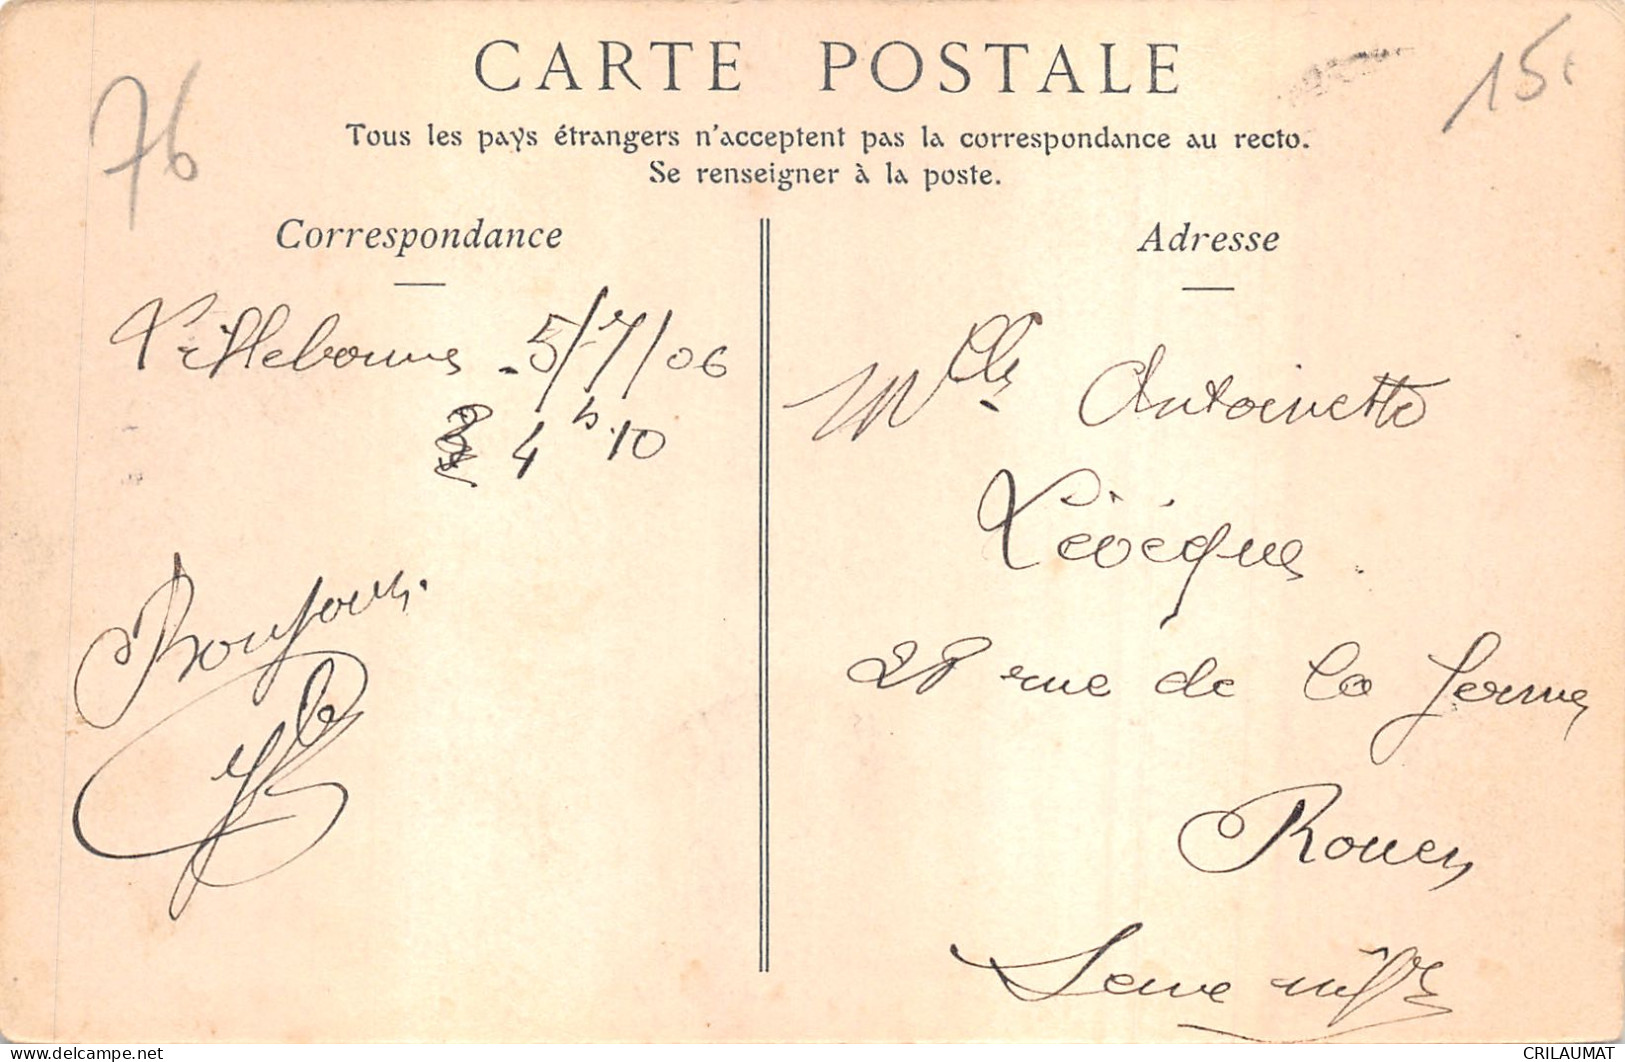 76
15
CARTE POSTALE
Tous les pays étrangers n'acceptent pas la correspondance au recto.
Se renseigner à la poste.
Correspondance
Lillebonne - 5/7/06
4 h 10
Bonjour.
Adresse
Mlle Antoinette
Lévèque
28 rue de la ferme
Rouen
Seine infre
CRILAUMAT